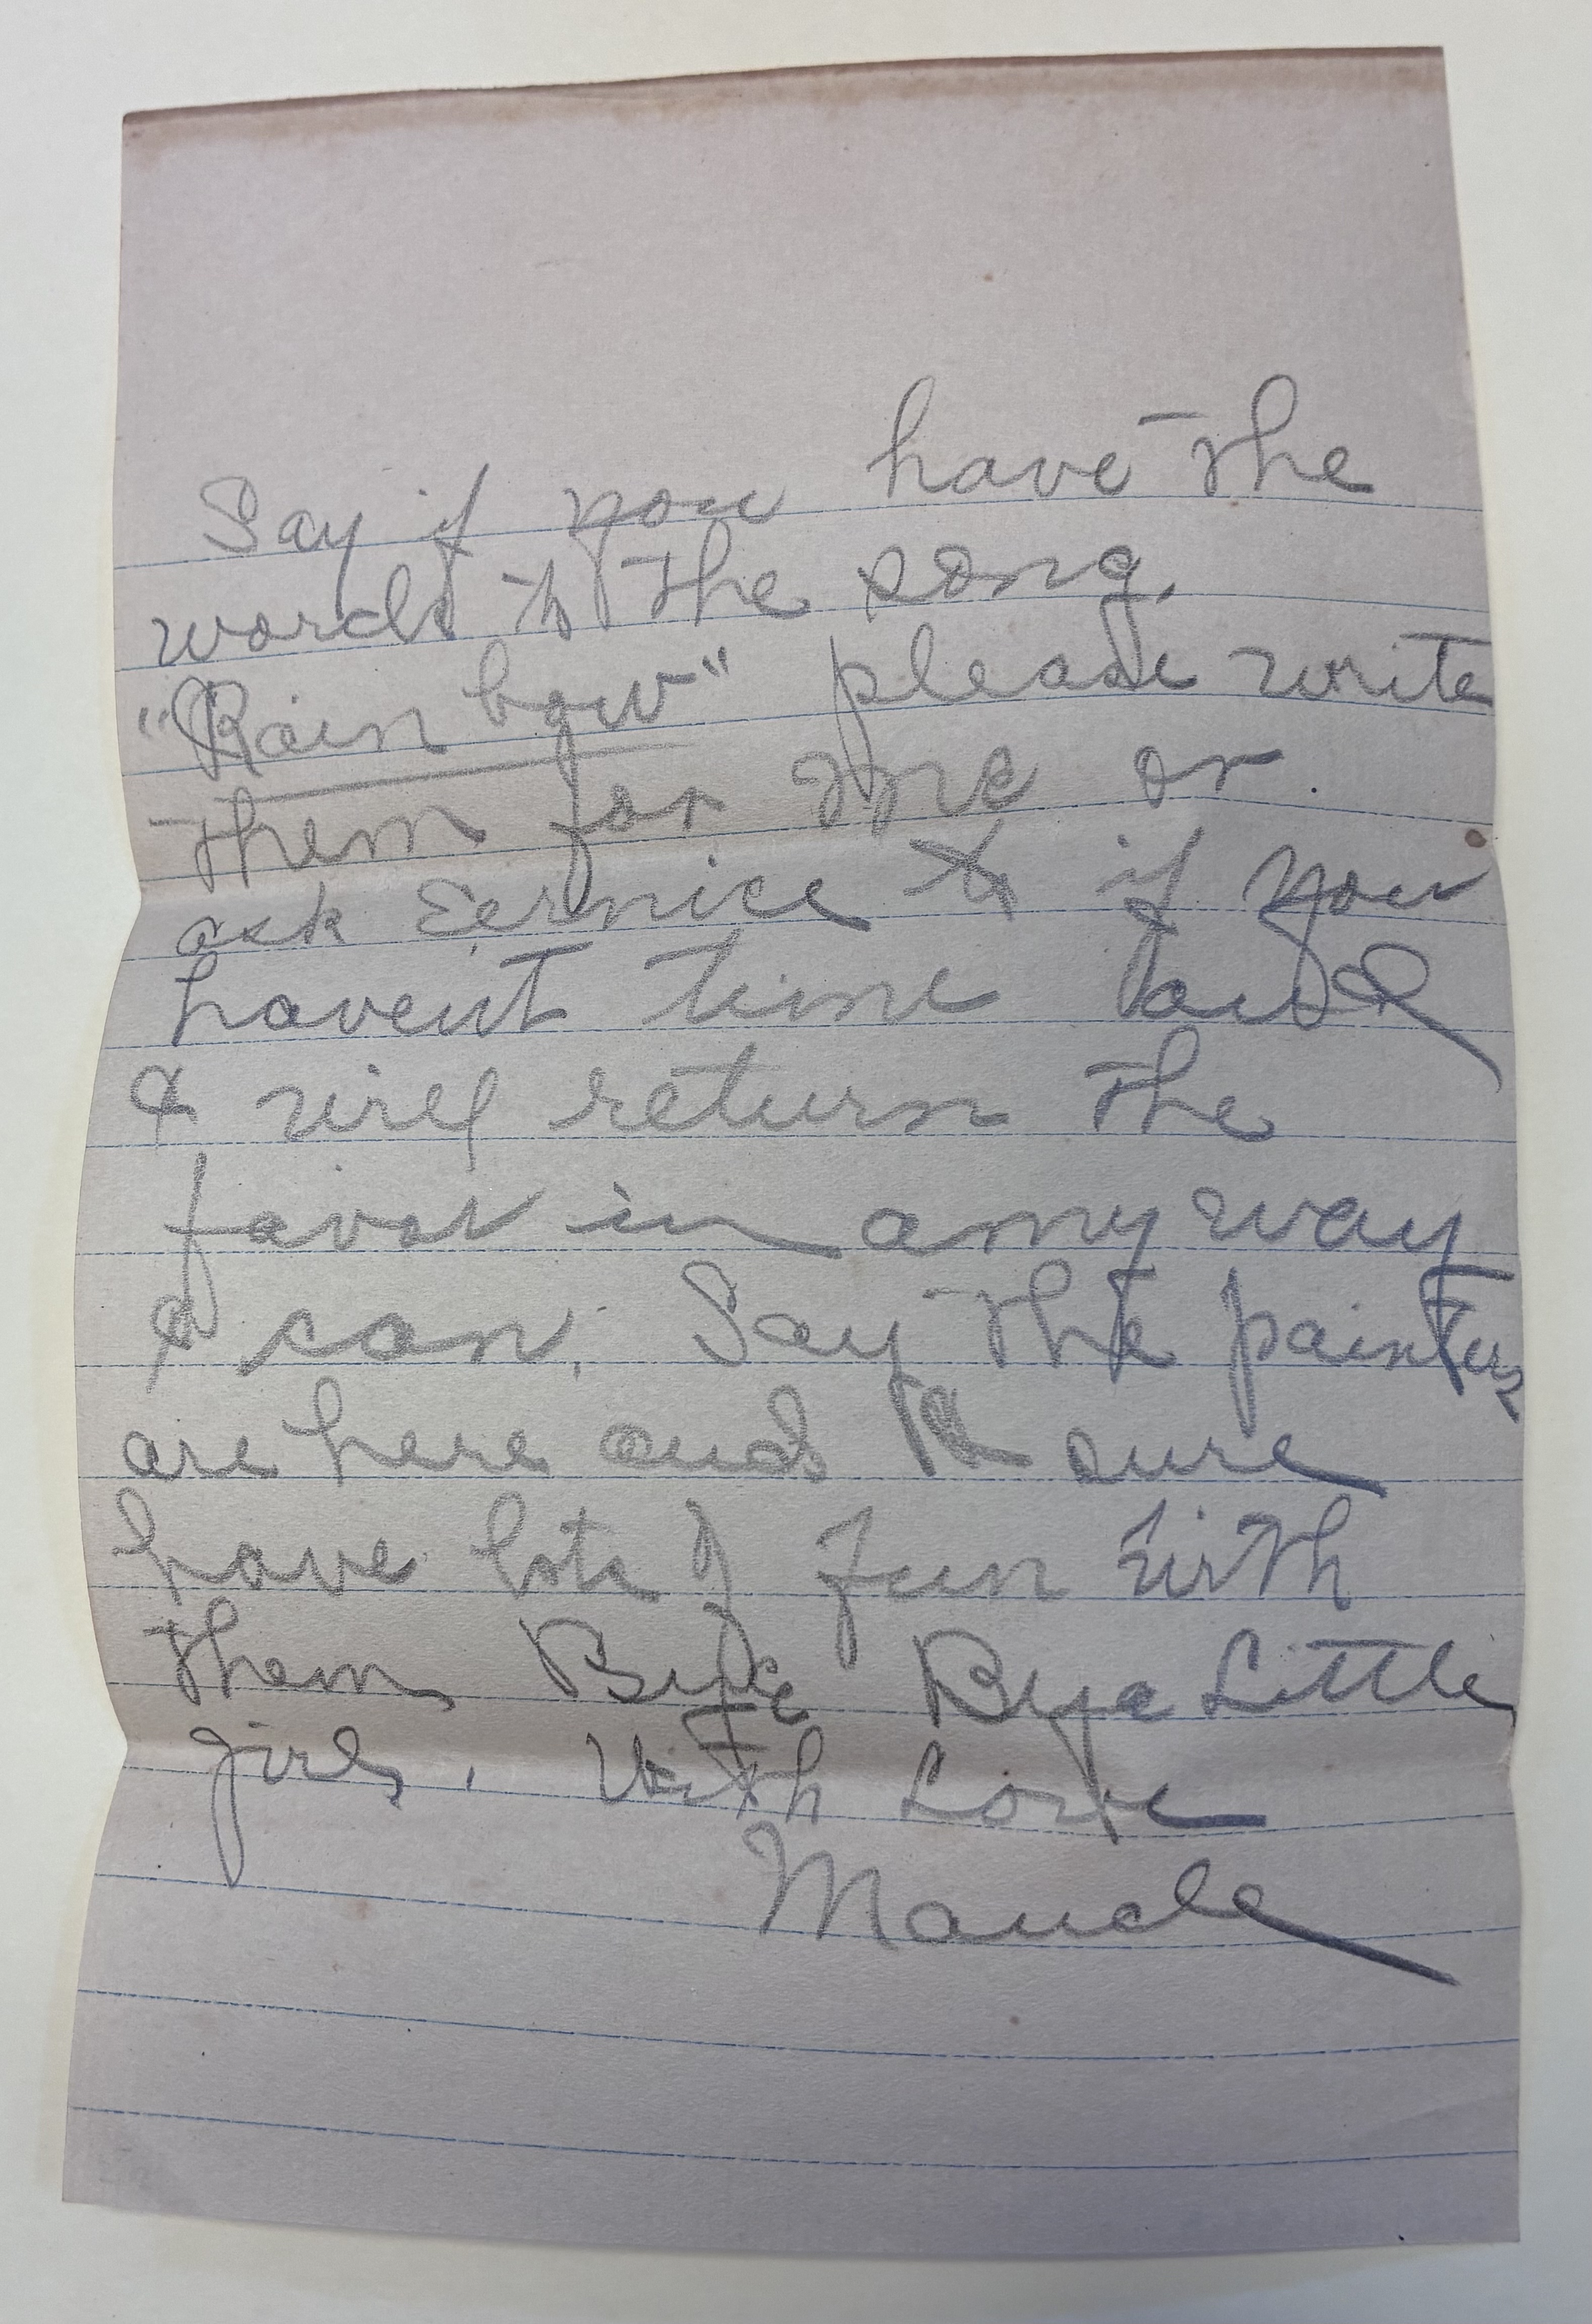 Say if you have the
words to the song,
"Rain bow" please write
them for me or
ask Eernice to if you
havent time and
I will return the
favor in any way
I can. Say the painters
are here and I sure
have lots of fun with
them, Bye Bye Little
girl, With Love
Maude